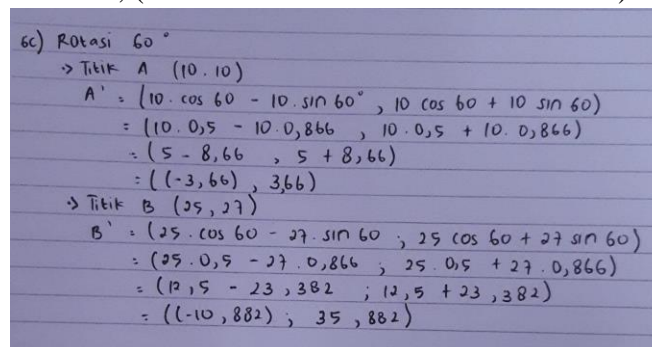 6c) Rotasi 60°
-> Titik A (10.10)
A' = (10. cos 60 - 10. sin 60°, 10 cos 60 + 10 sin 60)
= (10. 0,5 - 10. 0,866 , 10. 0,5 + 10. 0,866)
= (5 - 8,66 , 5 + 8,66)
= ((-3,66) , 3,66)
-> Titik B (25, 27)
B' = (25. cos 60 - 27. sin 60 ; 25 cos 60 + 27 sin 60)
= (25. 0,5 - 27. 0,866 ; 25. 0,5 + 27. 0,866)
= (12,5 - 23,382 ; 12,5 + 23,382)
= ((-10,882) ; 35,882)